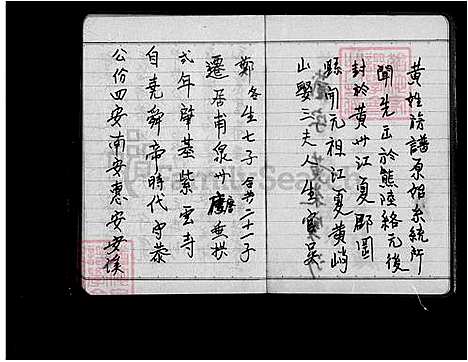 黃姓族譜原始系統所
聞先正於熊陸絡元後
封於黃州江夏郡固
縣開元祖江夏黃峭
山娶三夫人生官吳
鄭各生七子合共二十一子
遷居甫泉州唐垂拱
弍年肇基紫雲寺
自堯舜帝時代守恭
公份四安南安惠安安溪